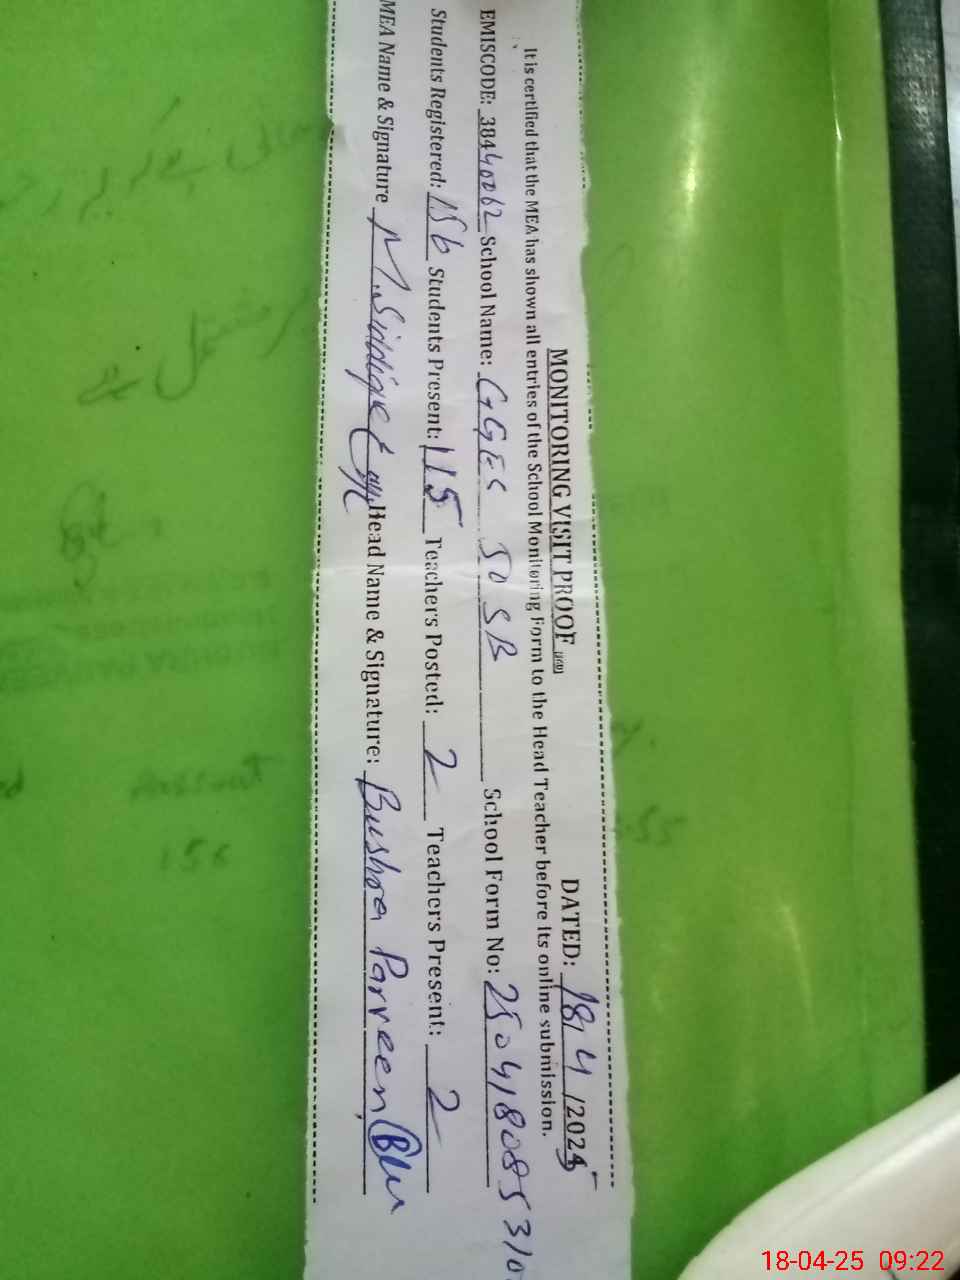 MONITORING VISIT PROOF DATED: 18/4/2025
It is certified that the MEA has shown all entries of the School Monitoring Form to the Head Teacher before its online submission.
EMISCODE: 38440062 School Name: GGES 50 SB School Form No: 250418085310
Students Registered: 156 Students Present: 115 Teachers Posted: 2 Teachers Present: 2
MEA Name & Signature M. Siddique Head Name & Signature: Bushra Parveen
156
18-04-25 09:22